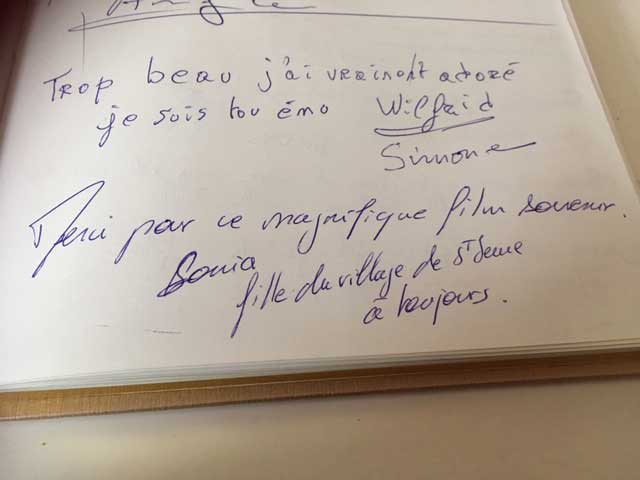 Trop beau j'ai vraiment adoré
je suis tou émo Wilfrid
Simone
Merci pour ce magnifique film souvenir.
Sonia
fille du village de St Seine
à toujours.